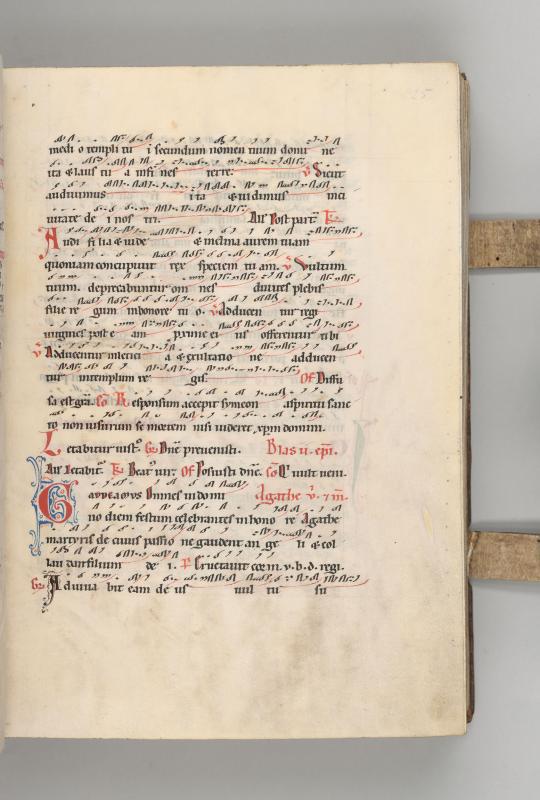 medi o templi tu i secundum nomen tuum domi ne
ita & laus tu a in fi nes terre. v Sicut
audiuimus ita & uidimus in ci
uitate de i nos tri. All Post part
Audi fi lia & uide & inclina aurem tuam
quoniam concupiuit rex speciem tu am. v Vultum
tuum. deprecabuntur om nes diuites plebis
filie re gum in honore tu o. v Adducen tur regi
uirgines post e am proxime ei us offerentur tibi
v Adducentur in leticia & exultatio ne adducen
tur in templum re gis. Of Diffu
sa est gra. Co Responsum accepit symeon a spiritu sanc
to non uisurum se mortem nisi uideret xpm domini.
Letabitur iust. Dne preuenisti. Blasii epi.
All Letabit. Beat uir. Of Posuisti dne. Co Q uult ueni.
Gaudeamus Omnes in domi Agathe v.
no diem festum celebrantes in hono re Agathe
martyris de cuius passio ne gaudent an ge li & col
laudant filium de i. P Eructauit cor m. v. b. d. regi.
Adiuua bit eam de us uul tu su